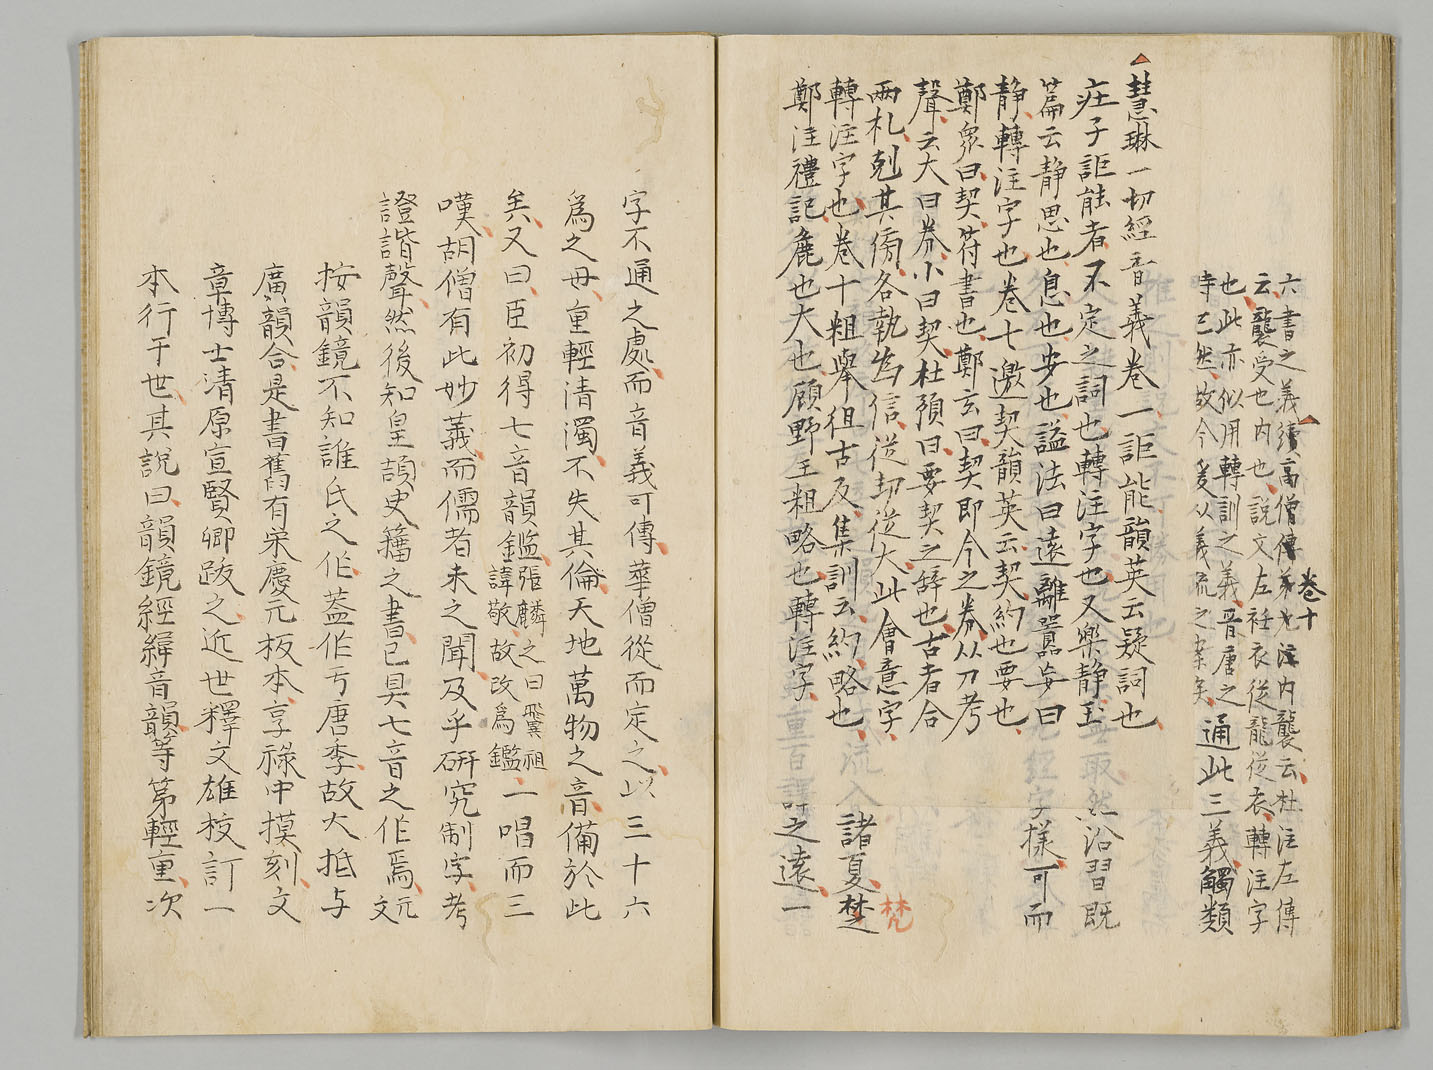 六書之義續高僧傳卷九注内襲云杜注左傳
卷十
云襲受也内也説文左衽衣従龍従衣轉注字
也此亦似用轉訓之義晋唐之
時已然故今
通此三義觸類
慧琳一切經音義卷一詎能韻英云疑詞也
庄子詎能者不定之詞也轉注字也又樂静玉
篇云静思也息也安也謚法曰遠離囂与曰
静轉注字也卷七邀契韻英云契約也要也
鄭衆曰契符書也鄭玄曰契即今之券从刀考
聲云大曰券小曰契杜預曰要契之辞也古者合
兩札剋其傍各執為信従㓞従大此會意字
轉注字也卷十粗舉徂古反集訓云約略也
鄭注禮記麁也大也顧野王粗略也轉注字
取然沿習既
字樣可而
諸夏楚
梵
譯之遠一
字不通之處而音義可傳華僧從而定之以三十六
爲之母重輕清濁不失其倫天地萬物之音備於此
矣又曰臣初得七音韻鑑張麟之曰翼祖諱敬故改爲鑑一唱而三
嘆胡僧有此妙義而儒者未之聞及乎研究制字考
證諧聲然後知皇頡史籒之書已具七音之作焉文元
按韻鏡不知誰氏之作蓋作亐唐季故大抵与
廣韻合是書舊有栄慶元板本享祿中摸刻文
章博士清原宣賢卿跋之近世釋文雄校訂一
本行于世其説曰韻鏡經緯音韻等第輕重次